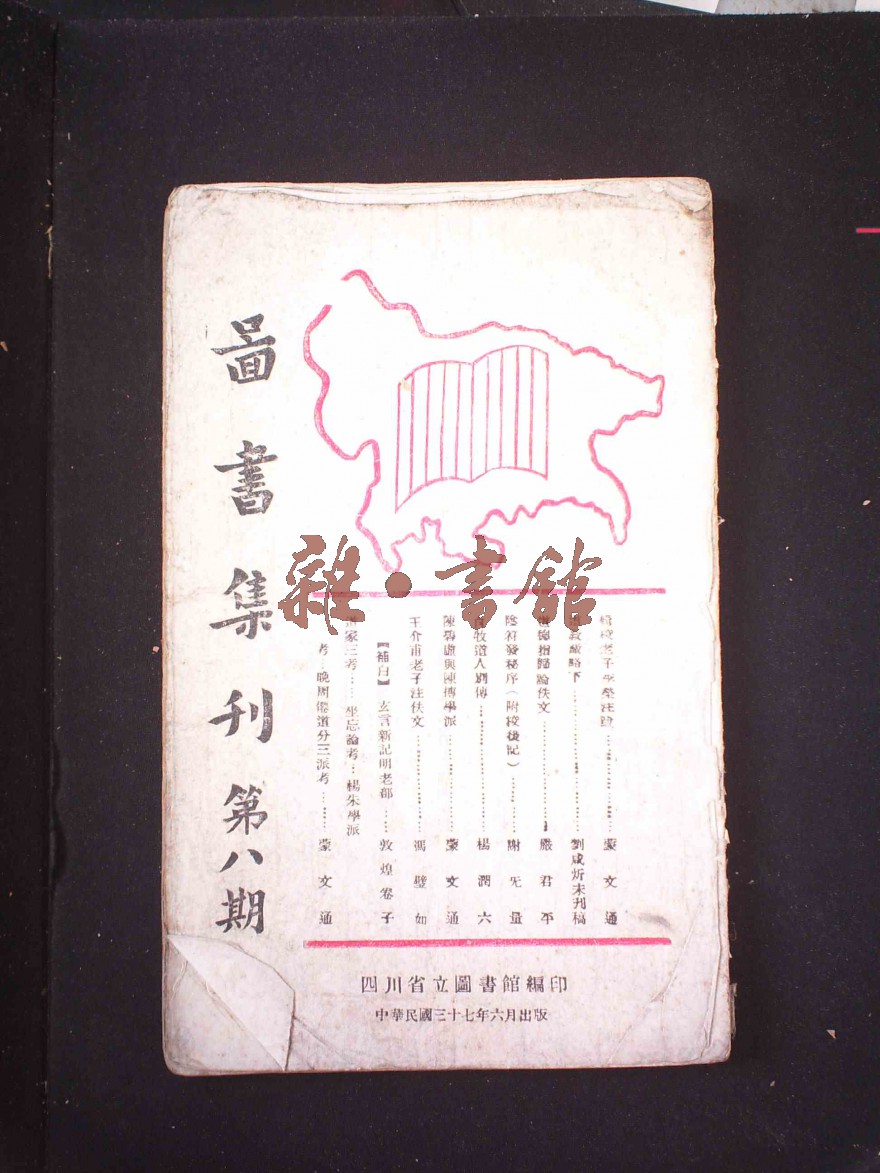 圖書集刊 第八期
雜·書館
輯校老子李榮注跋…………蒙文通
道教徵略下…………劉咸炘未刊稿
道德指歸論佚文…………嚴君平
陰符發秘序(附校後記)……謝无量
牧道人別傳…………楊潤六
陳碧虛與陳摶學派…………蒙文通
王介甫老子注佚文…………馮璧如
【補白】 玄言新記明老部……敦煌卷子
道家三考……坐忘論考…楊朱學派
考…晚周僊道分三派考……蒙文通
四川省立圖書館編印
中華民國三十七年六月出版